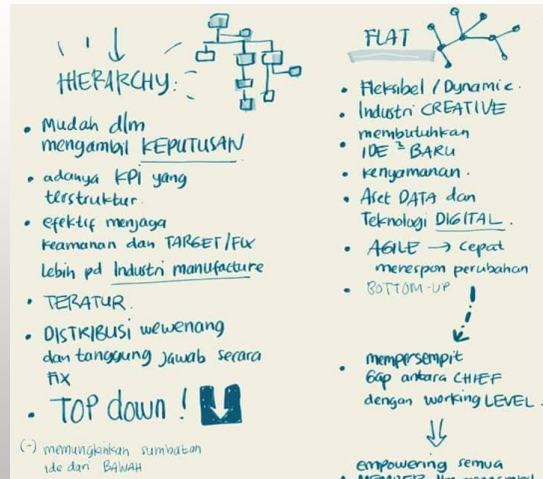 HIERARCHY:
• Mudah dlm
mengambil KEPUTUSAN
• adanya KPI yang
terstruktur.
• efektif menjaga
keamanan dan TARGET/FIX
lebih pd Industri manufacture
• TERATUR.
• DISTRIBUSI wewenang
dan tanggung jawab secara
FIX
• TOP down !
(-) memungkinkan sumbatan
ide dari BAWAH
FLAT
• Fleksibel / Dynamic.
• Industri CREATIVE
membutuhkan
• IDE ² BARU
• kenyamanan.
• Aset DATA dan
Teknologi DIGITAL.
• AGILE → cepat
merespon perubahan
• BOTTOM-UP
• mempersempit
Gap antara CHIEF
dengan working LEVEL.
empowering semua
MEMBER dlm mengambil